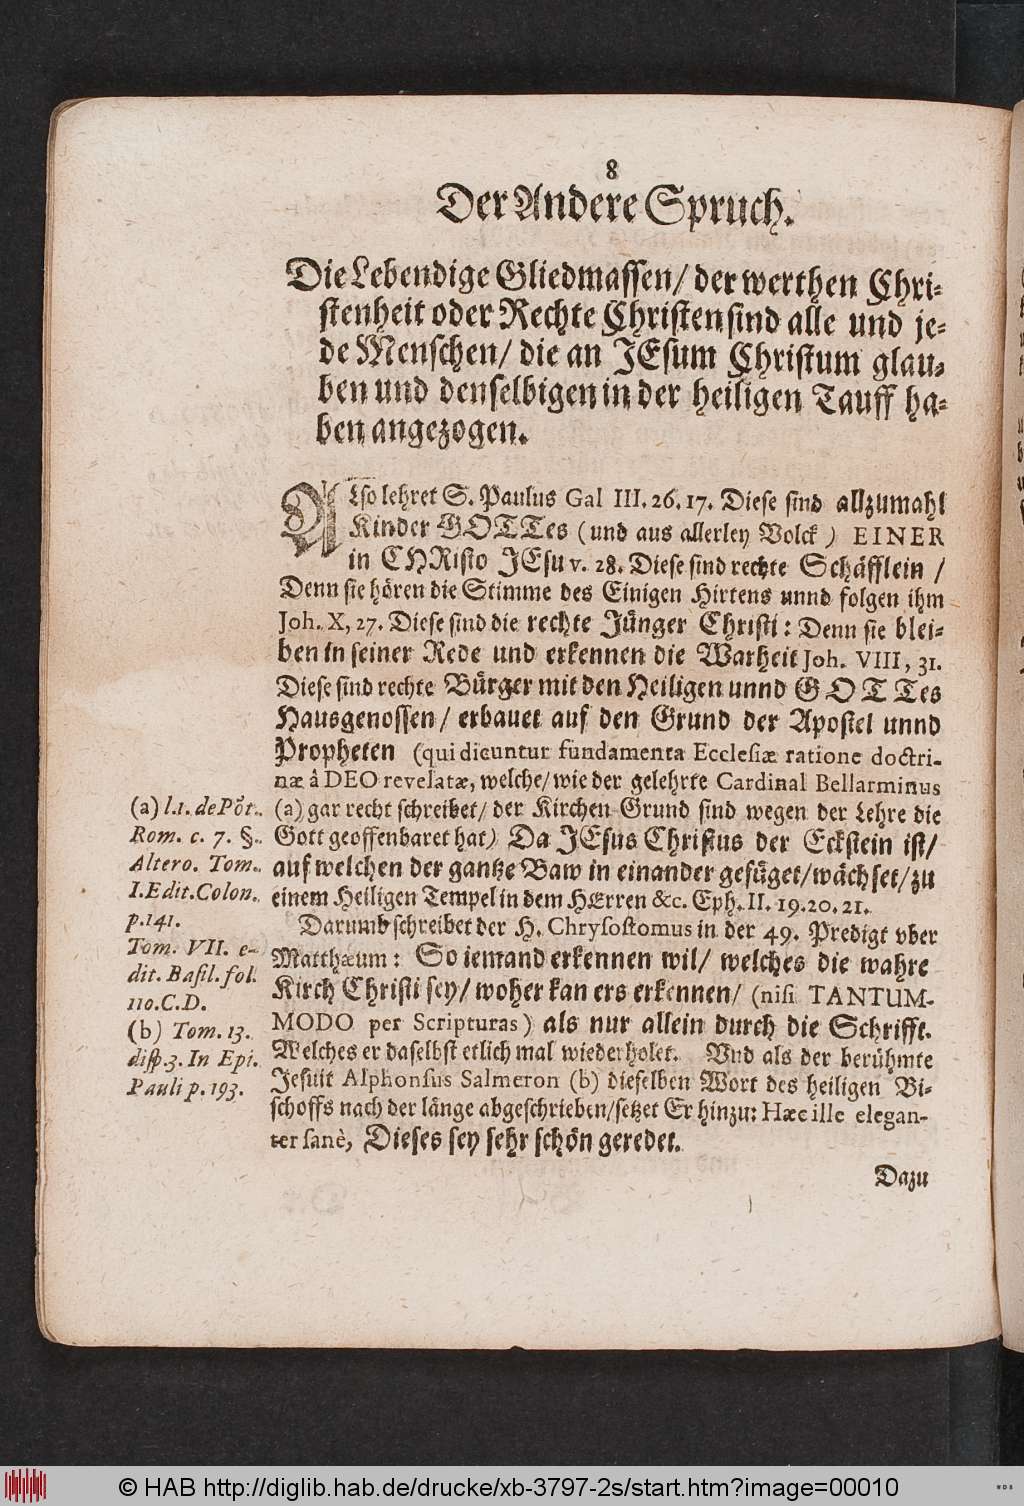 8
Der Andere Spruch.
Die Lebendige Gliedmassen/ der werthen Chri-
stenheit oder Rechte Christen sind alle und je-
de Menschen/ die an JEsum Christum glau-
ben und denselbigen in der heiligen Tauff ha-
ben angezogen.
Also lehret S. Paulus Gal III. 26. 17. Diese sind allzumahl
Kinder GOTTes (und aus allerley Volck) EINER
in CHRisto JEsu v. 28. Diese sind rechte Schäfflein /
Denn sie hören die Stimme des Einigen Hirtens unnd folgen ihm
Joh. X, 27. Diese sind die rechte Jünger Christi: Denn sie blei-
ben in seiner Rede und erkennen die Warheit Joh. VIII, 31.
Diese sind rechte Bürger mit den Heiligen unnd GOTTes
Hausgenossen/ erbauet auf den Grund der Apostel unnd
Propheten (qui dicuntur fundamenta Ecclesiæ ratione doctri-
næ â DEO revelatæ, welche/ wie der gelehrte Cardinal Bellarminus
(a) gar recht schreibet/ der Kirchen Grund sind wegen der Lehre die
Gott geoffenbaret hat) Da JEsus Christus der Eckstein ist/
auf welchen der gantze Baw in einander gefüget/ wächset/ zu
einem Heiligen Tempel in dem HErren &c. Eph. II. 19. 20. 21.
Darumb schreibet der H. Chrysostomus in der 49. Predigt vber
Matthæum: So iemand erkennen wil/ welches die wahre
Kirch Christi sey/ woher kan ers erkennen/ (nisi TANTUM-
MODO per Scripturas) als nur allein durch die Schrifft.
Welches er daselbst etlich mal wiederholet. Vnd als der berühmte
Jesuit Alphonsus Salmeron (b) dieselben Wort des heiligen Bi-
schoffs nach der länge abgeschrieben/ setzet Er hinzu: Hæc ille elegan-
ter sanè, Dieses sey sehr schön geredet.
Dazu
(a) l.1. de Pôt.
Rom. c. 7. §.
Altero. Tom.
I. Edit. Colon.
p. 141.
Tom. VII. e-
dit. Basil. fol.
110. C. D.
(b) Tom. 13.
disp. 3. In Epi.
Pauli p. 193.
© HAB http://diglib.hab.de/drucke/xb-3797-2s/start.htm?image=00010